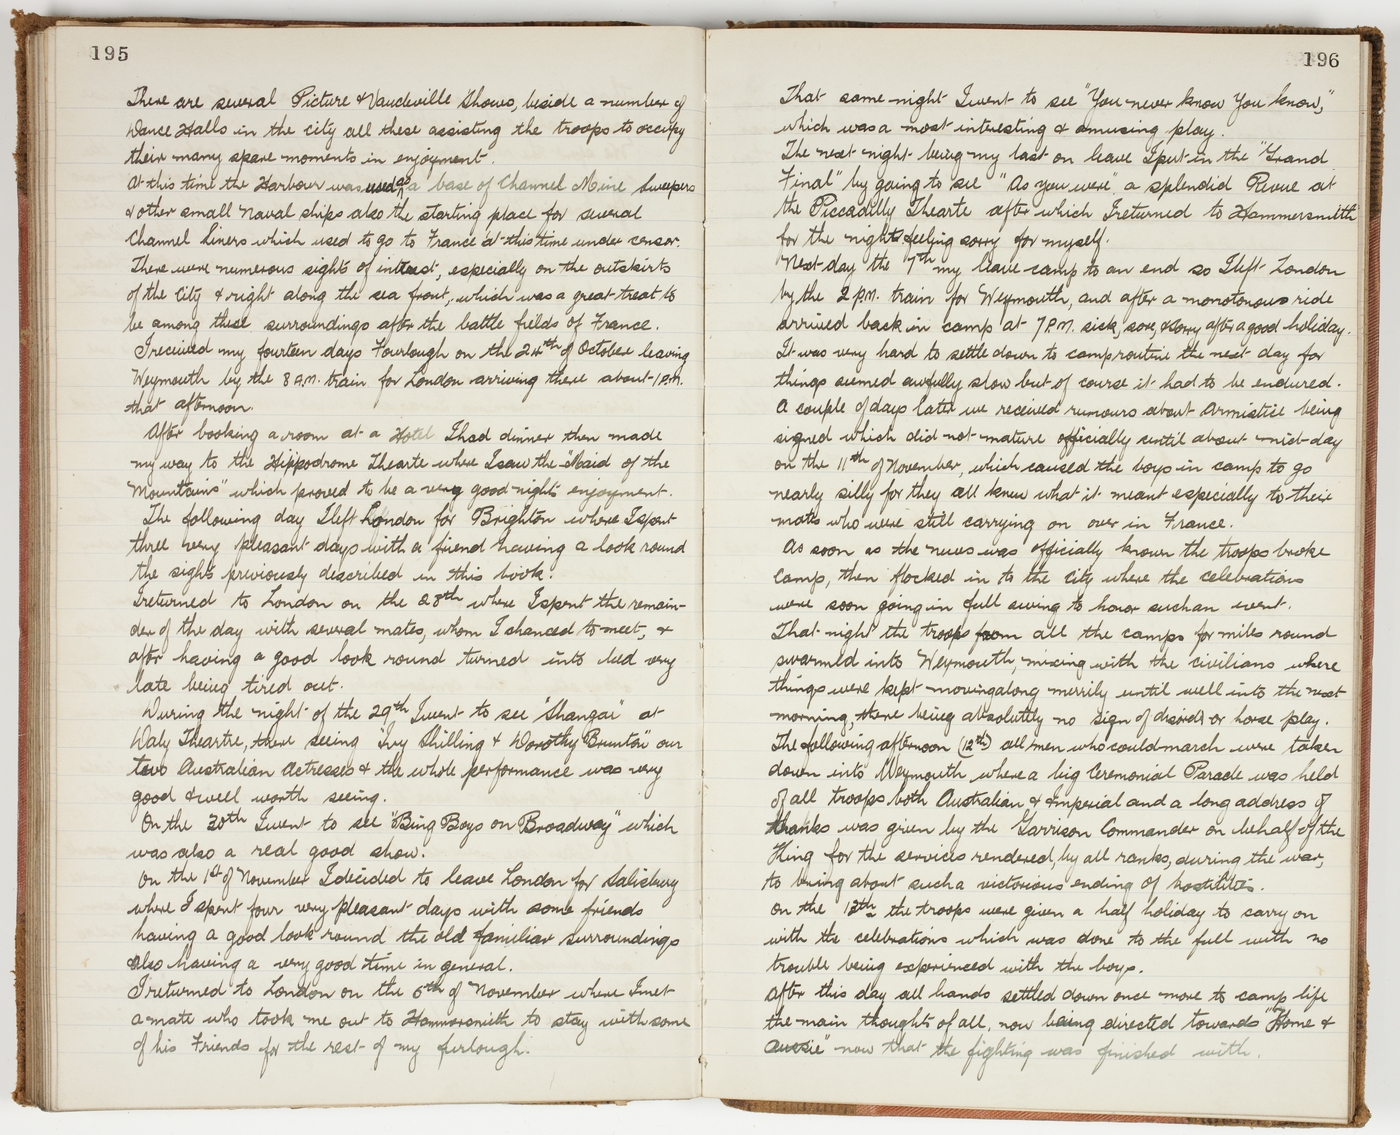 195
There are several Picture & Vaudeville Shows, beside a number of
Dance Halls in the city all these assisting the troops to occupy
their many spare moments in enjoyment.
At this time the Harbour was used as a base of Channel Mine Sweepers
& other small Naval ships also the starting place for several
Channel Liners which used to go to France at this time under censor.
There were numerous sights of interest, especially on the outskirts
of the City & right along the sea front, which was a great treat to
be among these surroundings after the battle fields of France.
I received my fourteen days Fourlough on the 24th of October leaving
Weymouth by the 8 A.M. train for London arriving there about 1 P.M.
that afternoon.
After booking a room at a Hotel I had dinner then made
my way to the Hippodrome Thearte where I saw the "Maid of the
Mountains" which proved to be a very good nights enjoyment.
The following day I left London for Brighton where I spent
three very pleasant days with a friend having a look round
the sights previously described in this book.
I returned to London on the 28th where I spent the remain-
der of the day with several mates, whom I chanced to meet, &
after having a good look round turned into bed very
late being tired out.
During the night of the 29th I went to see "Shangai" at
Daly Theartre, there seeing "Ivy Shilling & Dorothy Brunton" our
two Australian Actresses & the whole performance was very
good & well worth seeing.
On the 30th I went to see "Bing Boys on Broadway" which
was also a real good show.
On the 1st of November I decided to leave London for Salisbury
where I spent four very pleasant days with some friends
having a good look round the old familiar surroundings
also having a very good time in general.
I returned to London on the 5th of November where I met
a mate who took me out to Hammersmith to stay with some
of his Friends for the rest of my furlough.
196
That same night I went to see "You never know You know,"
which was a most interesting & amusing play.
The next night being my last on leave I put in the "Grand
Final" by going to see "As you were", a splendid Revue at
the Piccadilly Thearte after which I returned to Hammersmith
for the night feeling sorry for myself.
Next day the 7th my leave camp to an end so I left London
by the 2 P.M. train for Weymouth, and after a monotonous ride
arrived back in camp at 7 P.M. sick, sore, & sorry after a good holiday.
It was very hard to settle down to camp routine the next day for
things seemed awfully slow but of course it had to be endured.
A couple of days later we received rumours about Armistice being
signed which did not mature officially until about mid-day
on the 11th of November, which caused the boys in camp to go
nearly silly for they all knew what it meant especially to their
mates who were still carrying on over in France.
As soon as the news was officially known the troops broke
Camp, then flocked in to the City where the celebrations
were soon going in full swing to honor such an event.
That night the troops from all the camps for miles round
swarmed into Weymouth, mixing with the civilians where
things were kept moving along merrily until well into the next
morning, there being absolutely no sign of disorder or horse play.
The following afternoon (12th) all men who could march were taken
down into Weymouth where a big Ceremonial Parade was held
of all troops both Australian & Imperial and a long address of
thanks was given by the Garrison Commander on behalf of the
King for the services rendered, by all ranks, during the war,
to bring about such a victorious ending of hostilities.
On the 13th the troops were given a half holiday to carry on
with the celebrations which was done to the full with no
trouble being experienced with the boys.
After this day all hands settled down once more to camp life
the main thoughts of all, now being directed towards "Home &
Aussie" now that the fighting was finished with.